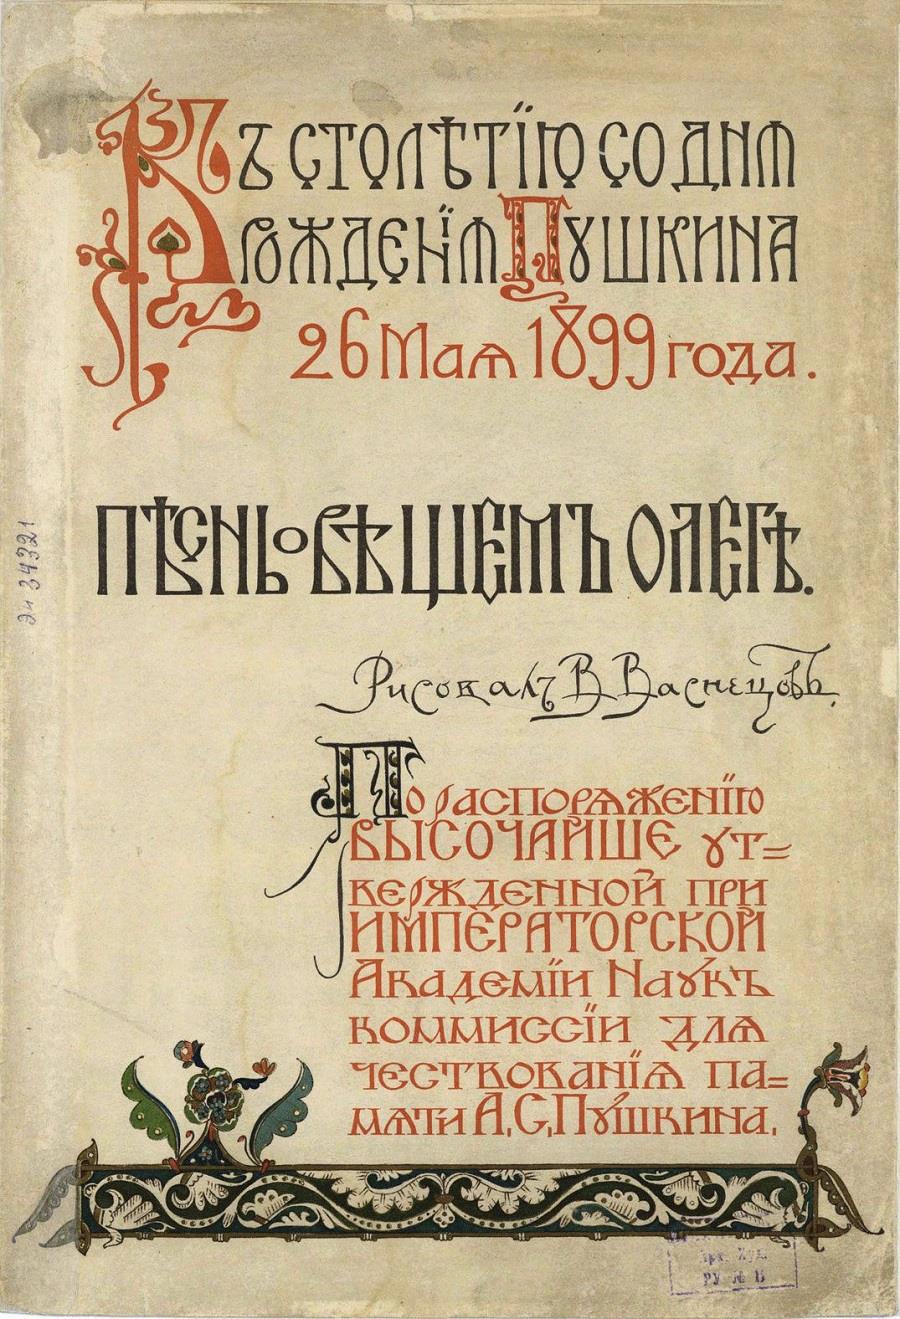 Къ столѣтію со дня
рожденія Пушкина
26 Мая 1899 года.
Пѣснь о вѣщемъ Олегѣ.
Рисовалъ В Васнецовъ.
По распоряженію
ВЫСОЧАЙШЕ ут=
вержденной при
ИМПЕРАТОРСКОЙ
Академіи Наукъ
коммиссіи для
чествованія па=
мяти А. С. Пушкина.
34321